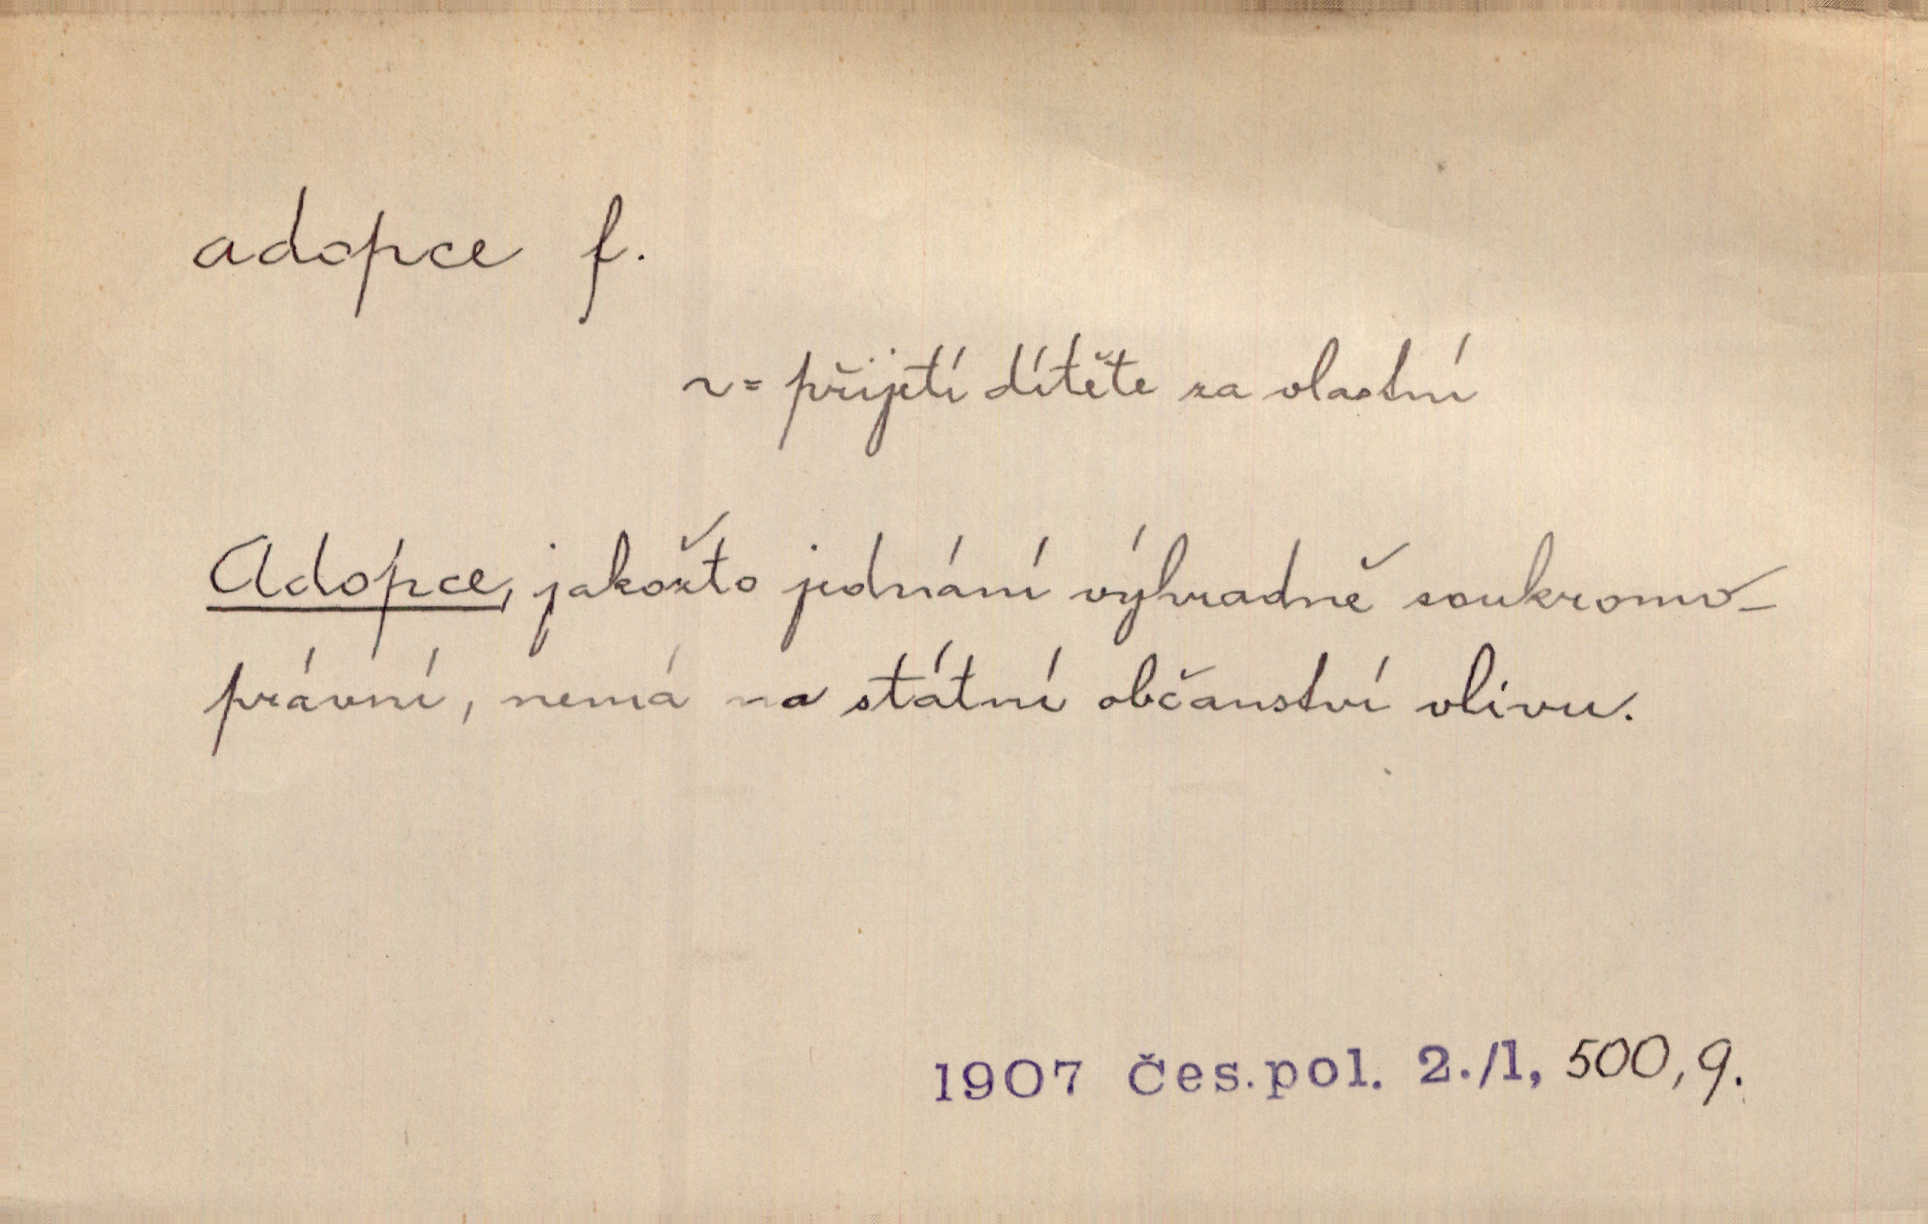 adopce f.
~= přijetí dítěte za vlastní
Adopce, jakožto jednání výhradně soukromo-
právní, nemá na státní občanství vlivu.
1907 čes.pol. 2./1, 500, 9.